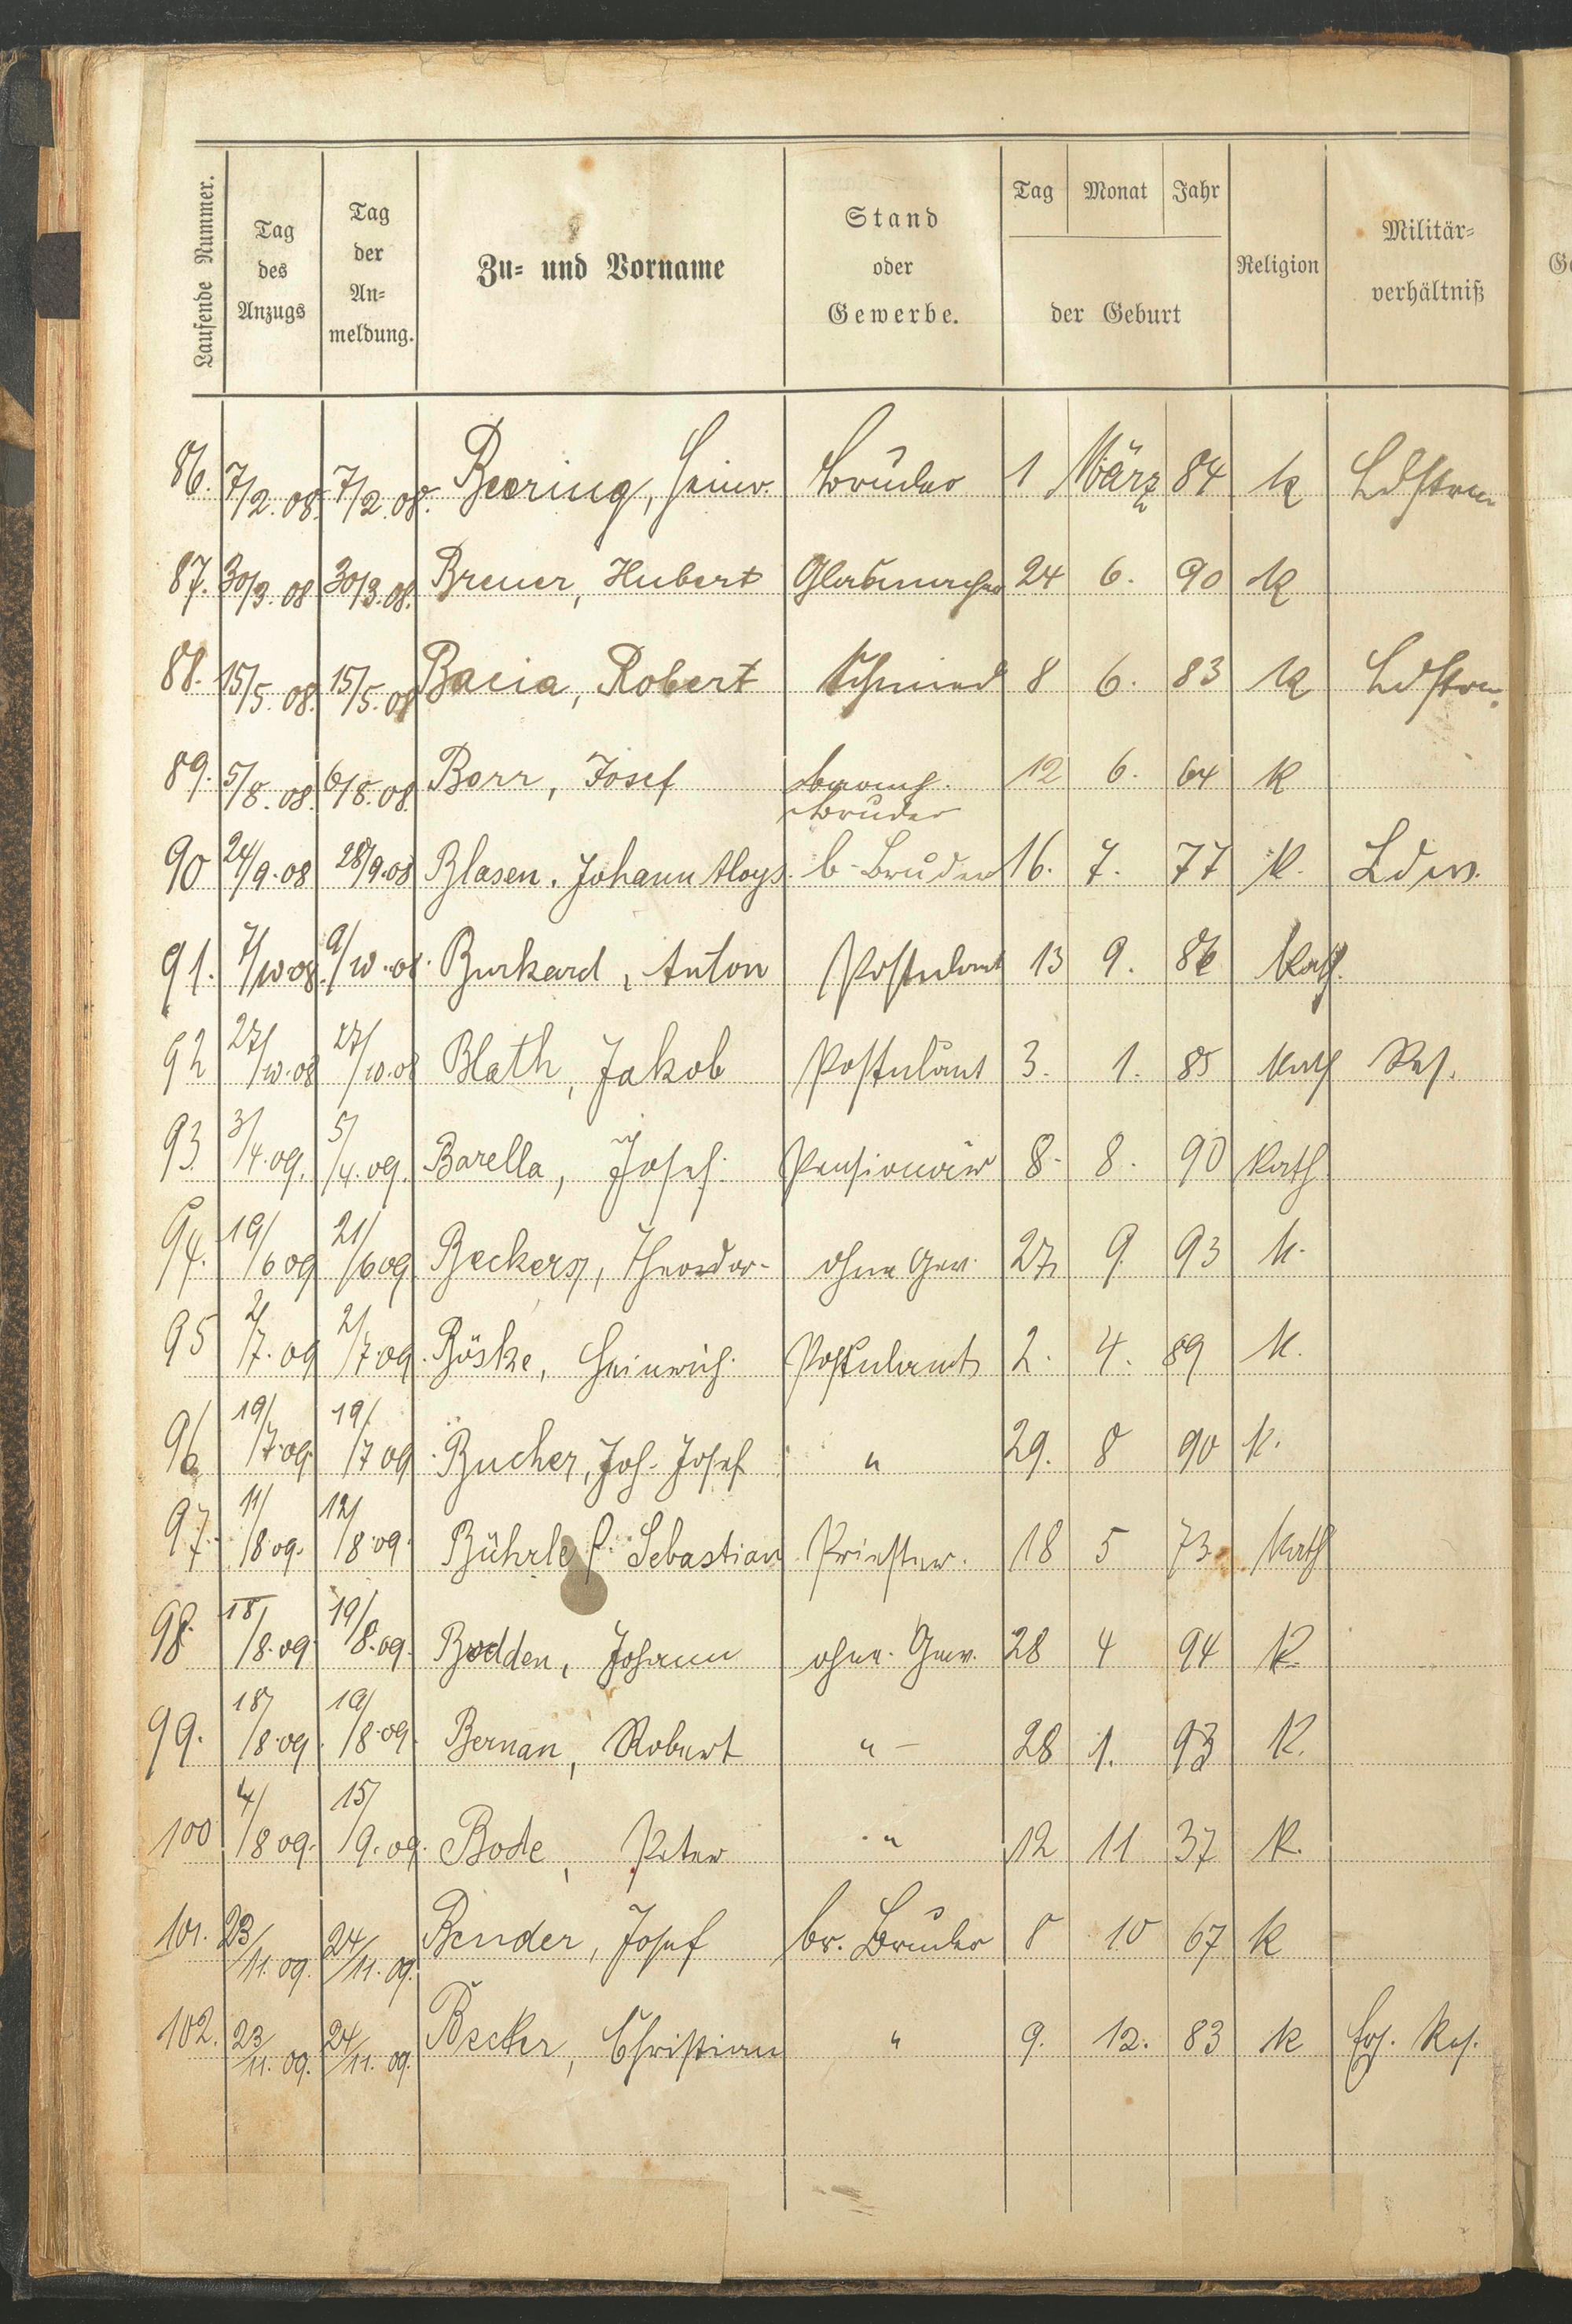 Laufende Nummer.
Tag des Anzugs
Tag der An= meldung.
Zu= und Vorname
Stand oder Gewerbe.
Tag Monat Jahr
der Geburt
Religion
Militär= verhältniß
86. 7/2. 08. 7/2. 08. Beering, Heinr. Bruder 1 März 84 k Ldstrm
87. 30/3. 08 30/3. 08. Breuer, Hubert Glasmacher 24 6. 90 k
88. 15/5. 08. 15/5. 08 Bacia, Robert Schmied 8 6. 83 k Ldstrm.
89. 5/8. 08. 6/8. 08. Borr, Josef barmh. 12 6. 64 k
Bruder
90 24/9. 08 28/9. 08 Blasen. Johann Aloys. b-Bruder 16. 7. 77 k. Ldw.
91. 7/10 08. 9/10. 08. Burkard, Anton Postulant 13 9. 86 Kath.
92 27/10. 08 27/10. 08 Blath, Jakob Postulant 3. 1. 85 Kath Res.
93. 3/4. 09. 5/4. 09. Barella, Josef. Pensionär 8. 8. 90 Kath
94. 19/6 09 21/6 09 Beckers, Theodor ohne Gew. 27 9. 93 k.
95 2/7. 09 2/7. 09. Böske, Heinrich. Postulant 2. 4. 89 k.
96 19/7. 09. 19/7 09 Bucher, Joh. Josef " 29. 8 90 k.
97. 11/8 09. 12/8 09. Bührle Sebastian Priester. 18 5 73 Kath
98. 18/8. 09 19/8. 09. Bodden, Johann ohne. Gew. 28 4 94 K.
99. 18/8. 09. 19/8. 09. Bernan, Robert " 28 1. 93 K.
100 4/8 09. 15/9. 09. Bode, Peter " 12 11 37 K.
101. 23/11. 09. 24/11. 09. Bender, Josef br. Bruder 8 10 67 k
102. 23/11. 09. 24/11. 09. Becker, Christian " 9. 12. 83 k Ers. Res.